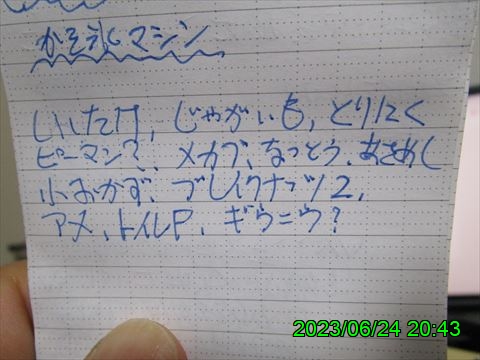 かそうしマシン
しいたけ, じゃがいも, とりにく
ピーマン?, メカブ, なっとう, あさめし
小おかず, ブレイクナッツ2,
アメ, トイレP, ギウニウ?
2023/06/24 20:43